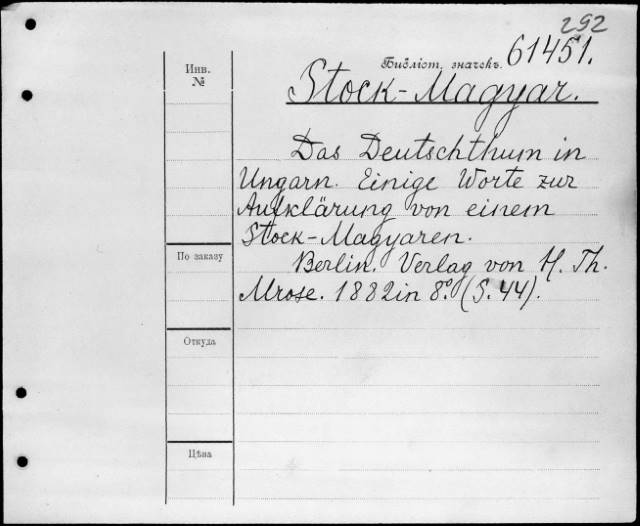 292
Инв.
№
Библіот. значекъ. 61451.
Stock-Magyar.
Das Deutschthum in
Ungarn. Einige Worte zur
Aufklärung von einem
Stock-Magyaren.
По заказу
Berlin. Verlag von H. Th.
Mrose. 1882 in 8º. (S. 44).
Откуда
Цѣна